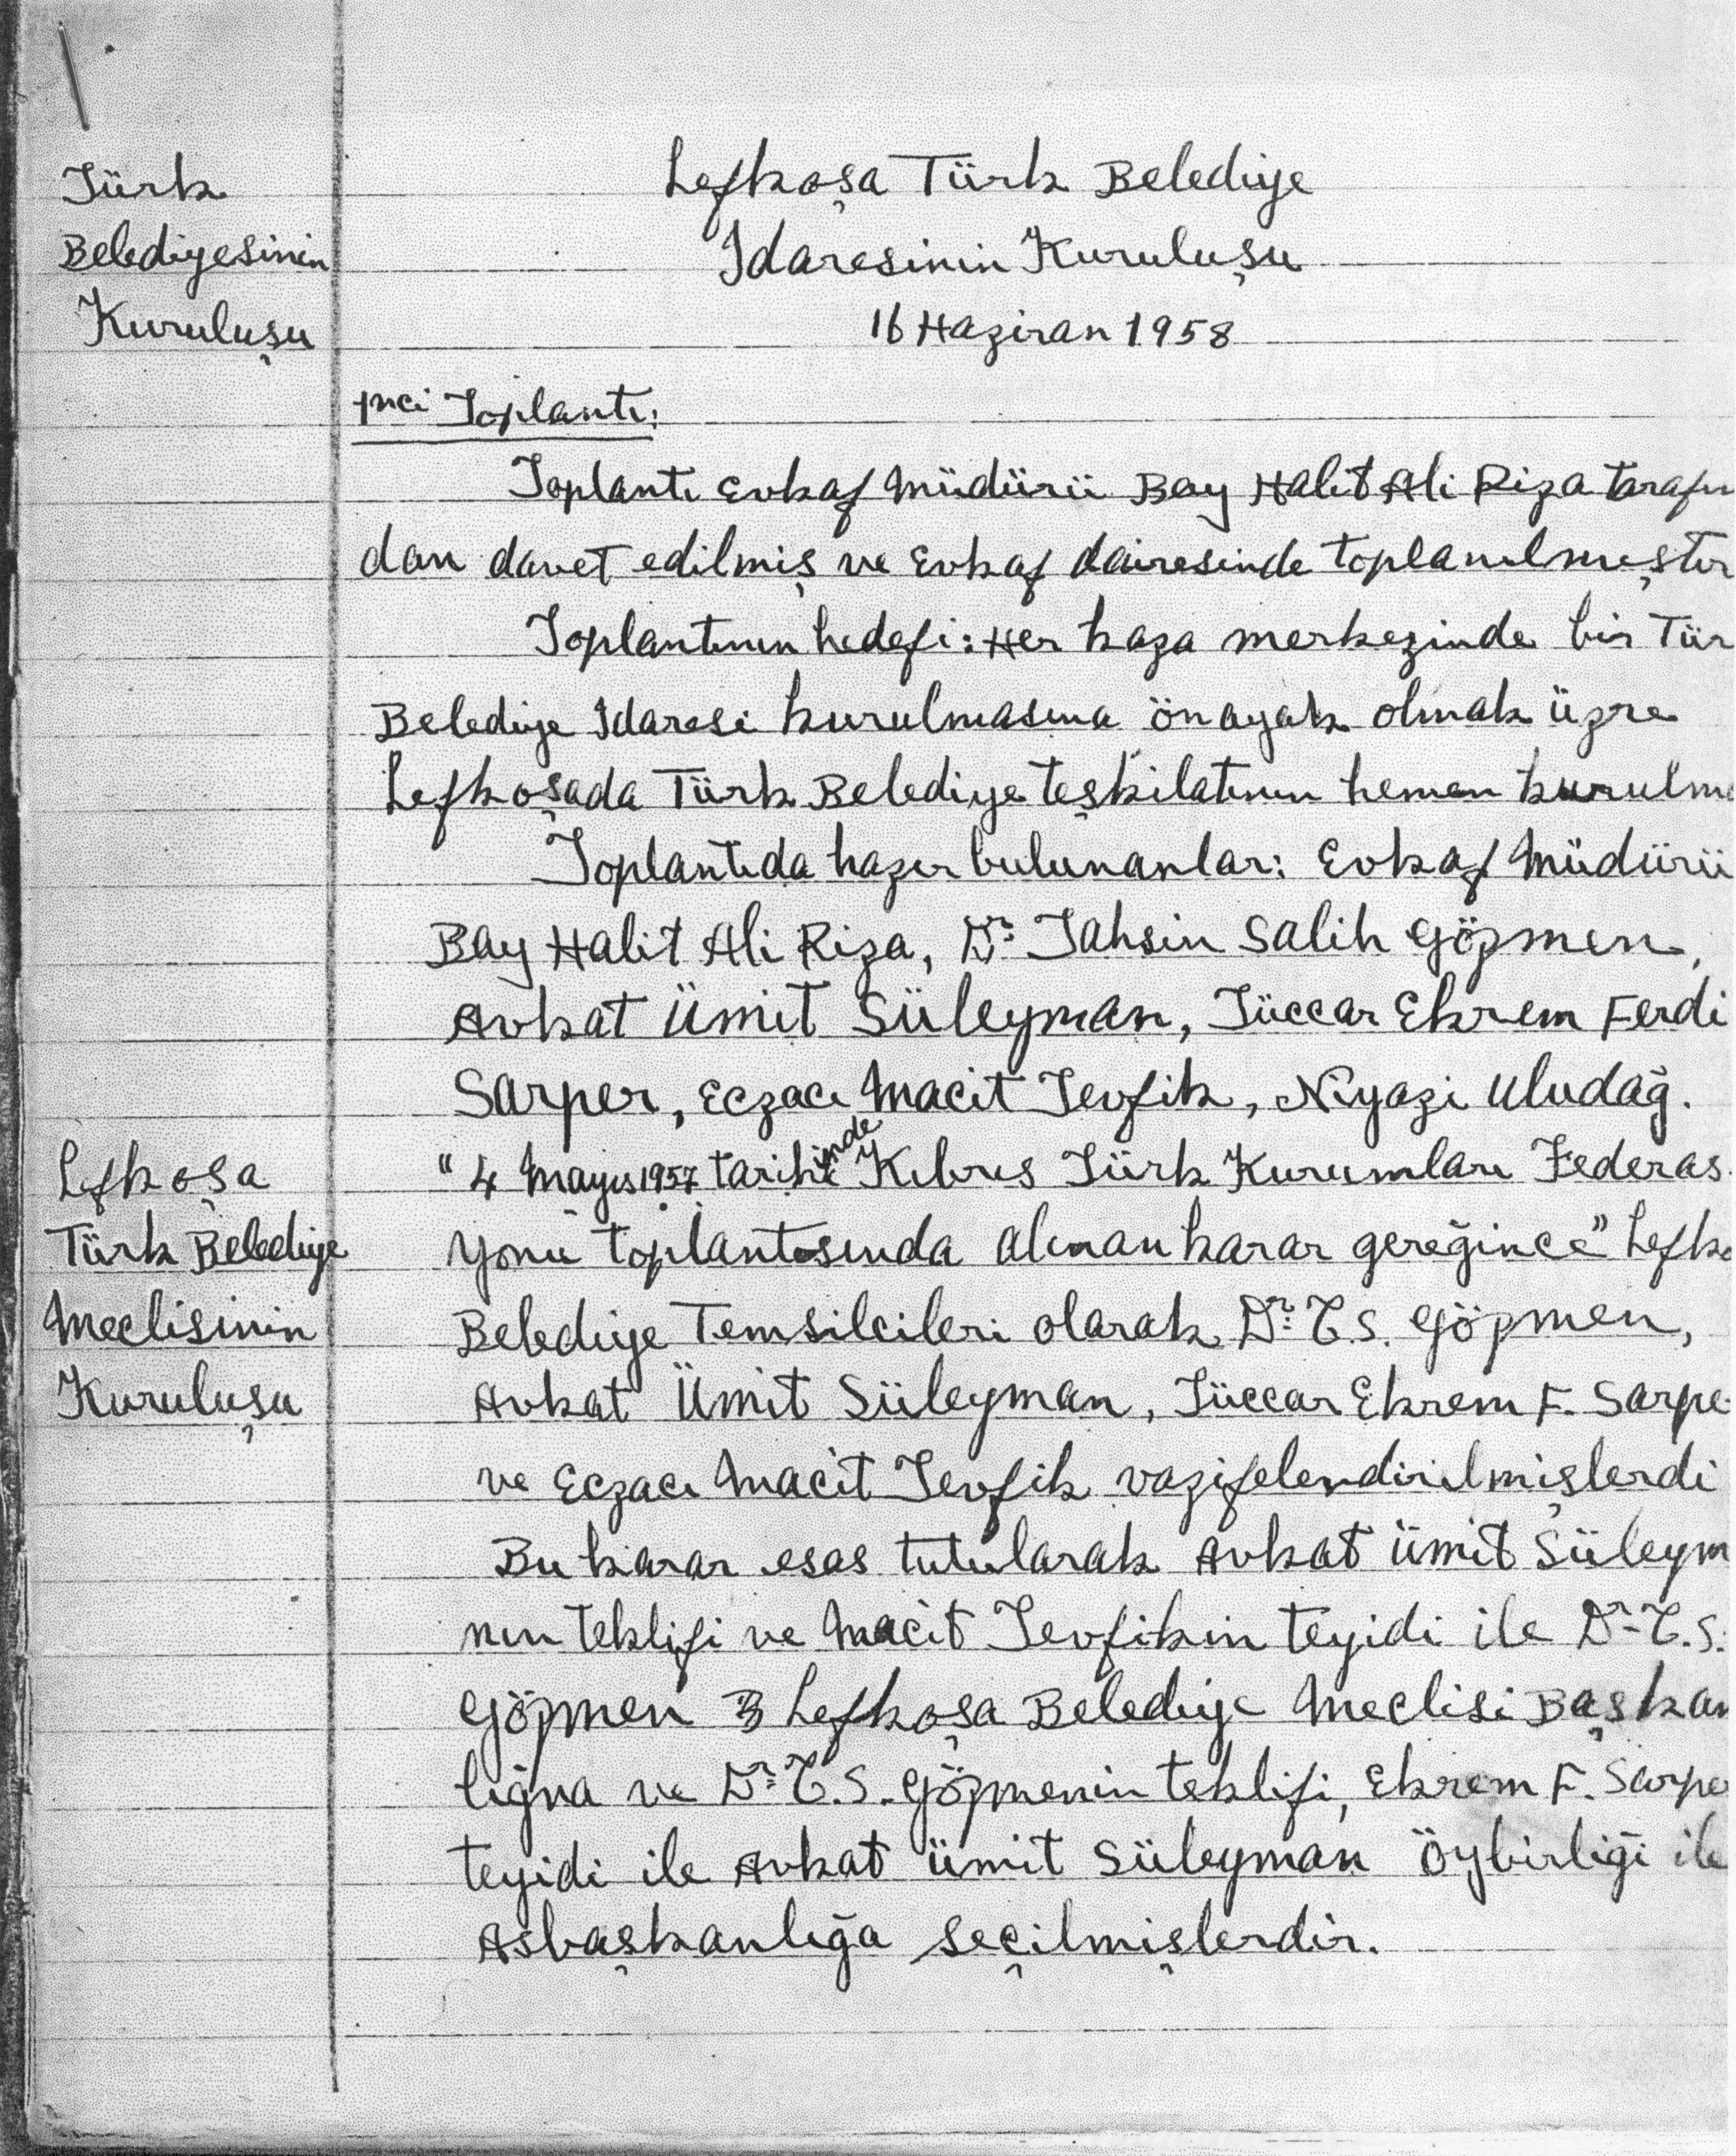 Türk
Belediyesinin
Kuruluşu
Lefkoşa Türk Belediye
Idaresinin Kuruluşu
16 Haziran 1958
1nci Toplantı:
Toplantı Evkaf Müdürü Bay Halit Ali Riza tarafın
dan davet edilmiş ve Evkaf dairesinde toplanılmıştır
Toplantının hedefi: Her kaza merkezinde bir Tür
Belediye Idaresi kurulmasına önayak olmak üzre
Lefkoşada Türk Belediye teşkilatının hemen kurulma
Toplantıda hazır bulunanlar: Evkaf Müdürü
Bay Halit Ali Riza, Dr. Tahsin Salih Gözmen,
Avkat Ümit Süleyman, Tüccar Ekrem Ferdi
Sarper, Eczacı Macit Tevfik, Niyazi Uludağ.
Lefkoşa
Türk Belediye
Meclisinin
Kuruluşu
"4 Mayıs 1957 tarihinde Kıbrıs Türk Kurumları Federas
yonu toplantısında alınan karar gereğince" Lefko
Belediye Temsilcileri olarak Dr. T.S. Gözmen,
Avkat Ümit Süleyman, Tüccar Ekrem F. Sarpe
ve Eczacı Macit Tevfik vazifelendirilmişlerdi
Bu karar esas tutularak Avkat Ümit Süleym
nın teklifi ve Macit Tevfikin teyidi ile Dr. T.S.
Gözmen Lefkoşa Belediye Meclisi Başkan
lığna ve Dr. T.S. Gözmenin teklifi, Ekrem F. Sarpe
teyidi ile Avkat Ümit Süleyman Öybirliği ile
Asbaşkanlığa seçilmişlerdir.